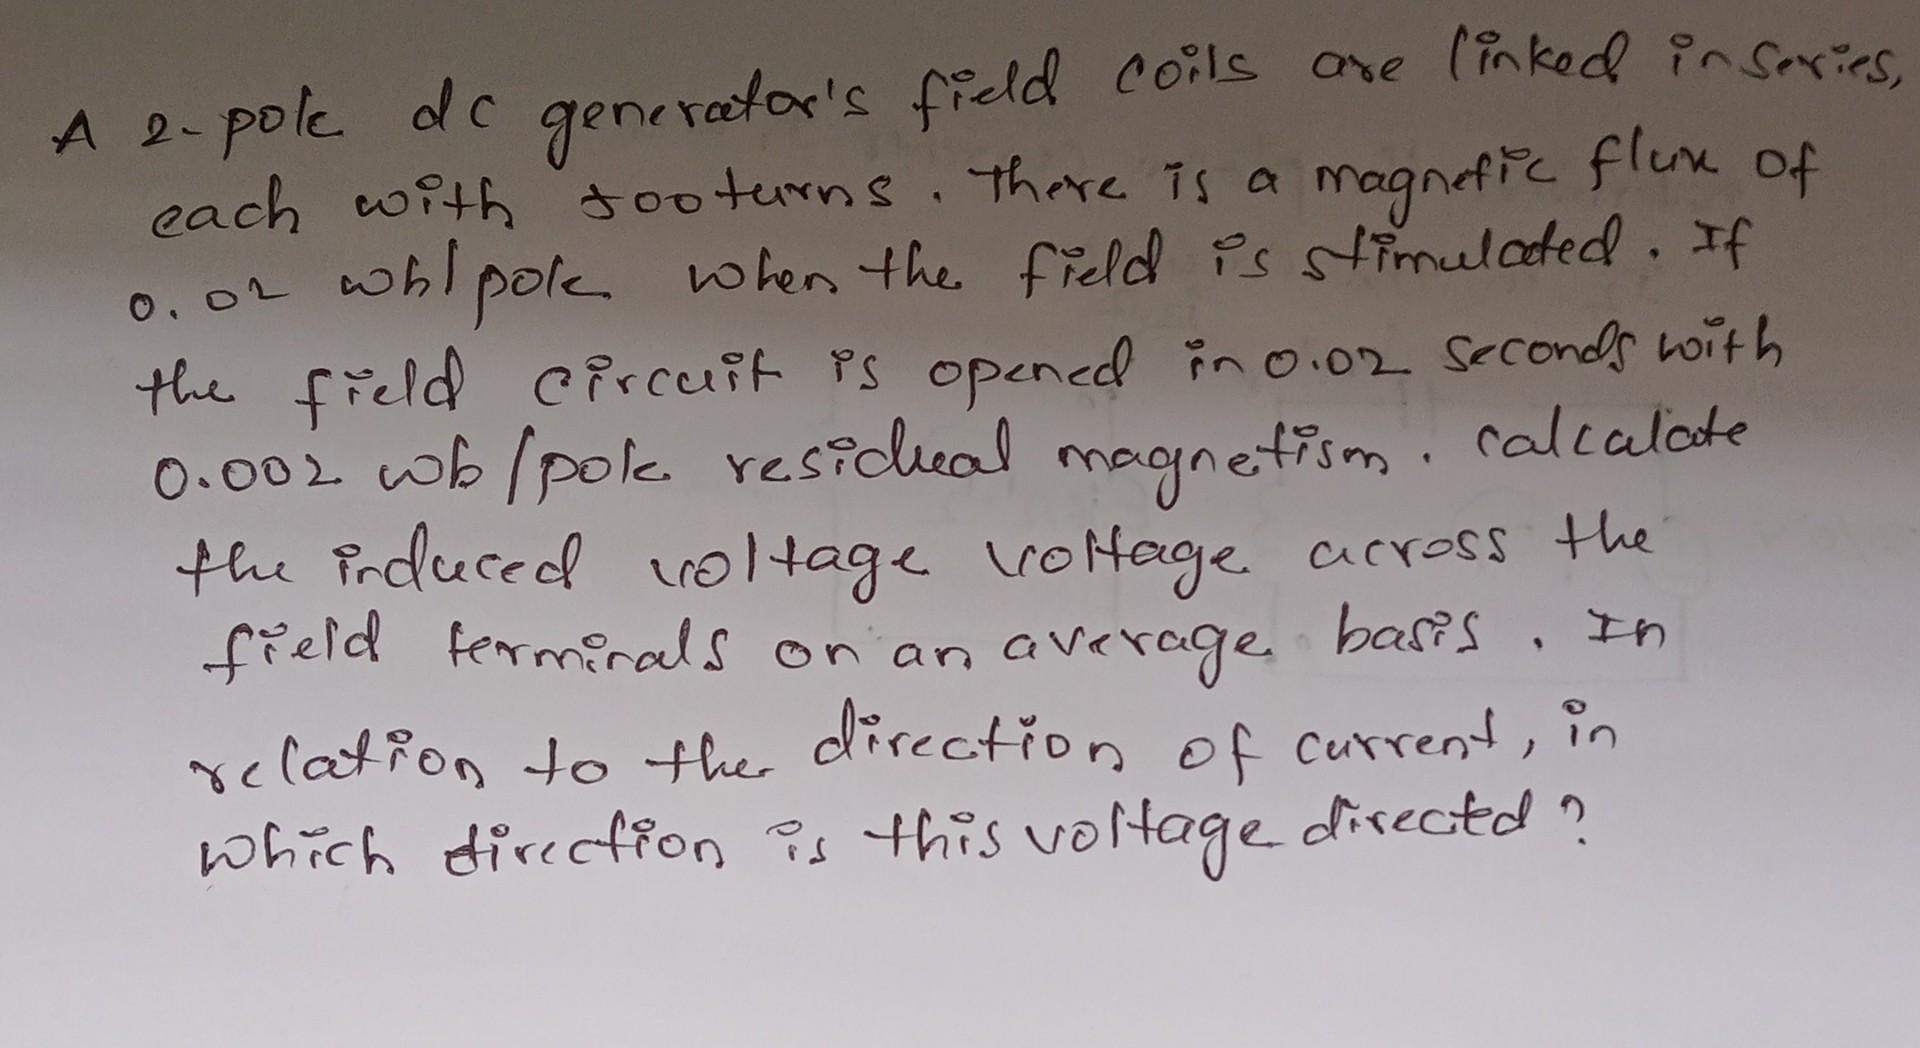 A 2-pole dc generator's field coils are linked in series,
each with 500 turns. There is a magnetic flux of
0.02 wb/pole when the field is stimulated. If
the field circuit is opened in 0.02 seconds with
0.002 wb/pole residual magnetism. calculate
the induced voltage voltage across the
field terminals on an average basis. In
relation to the direction of current, in
which direction is this voltage directed?